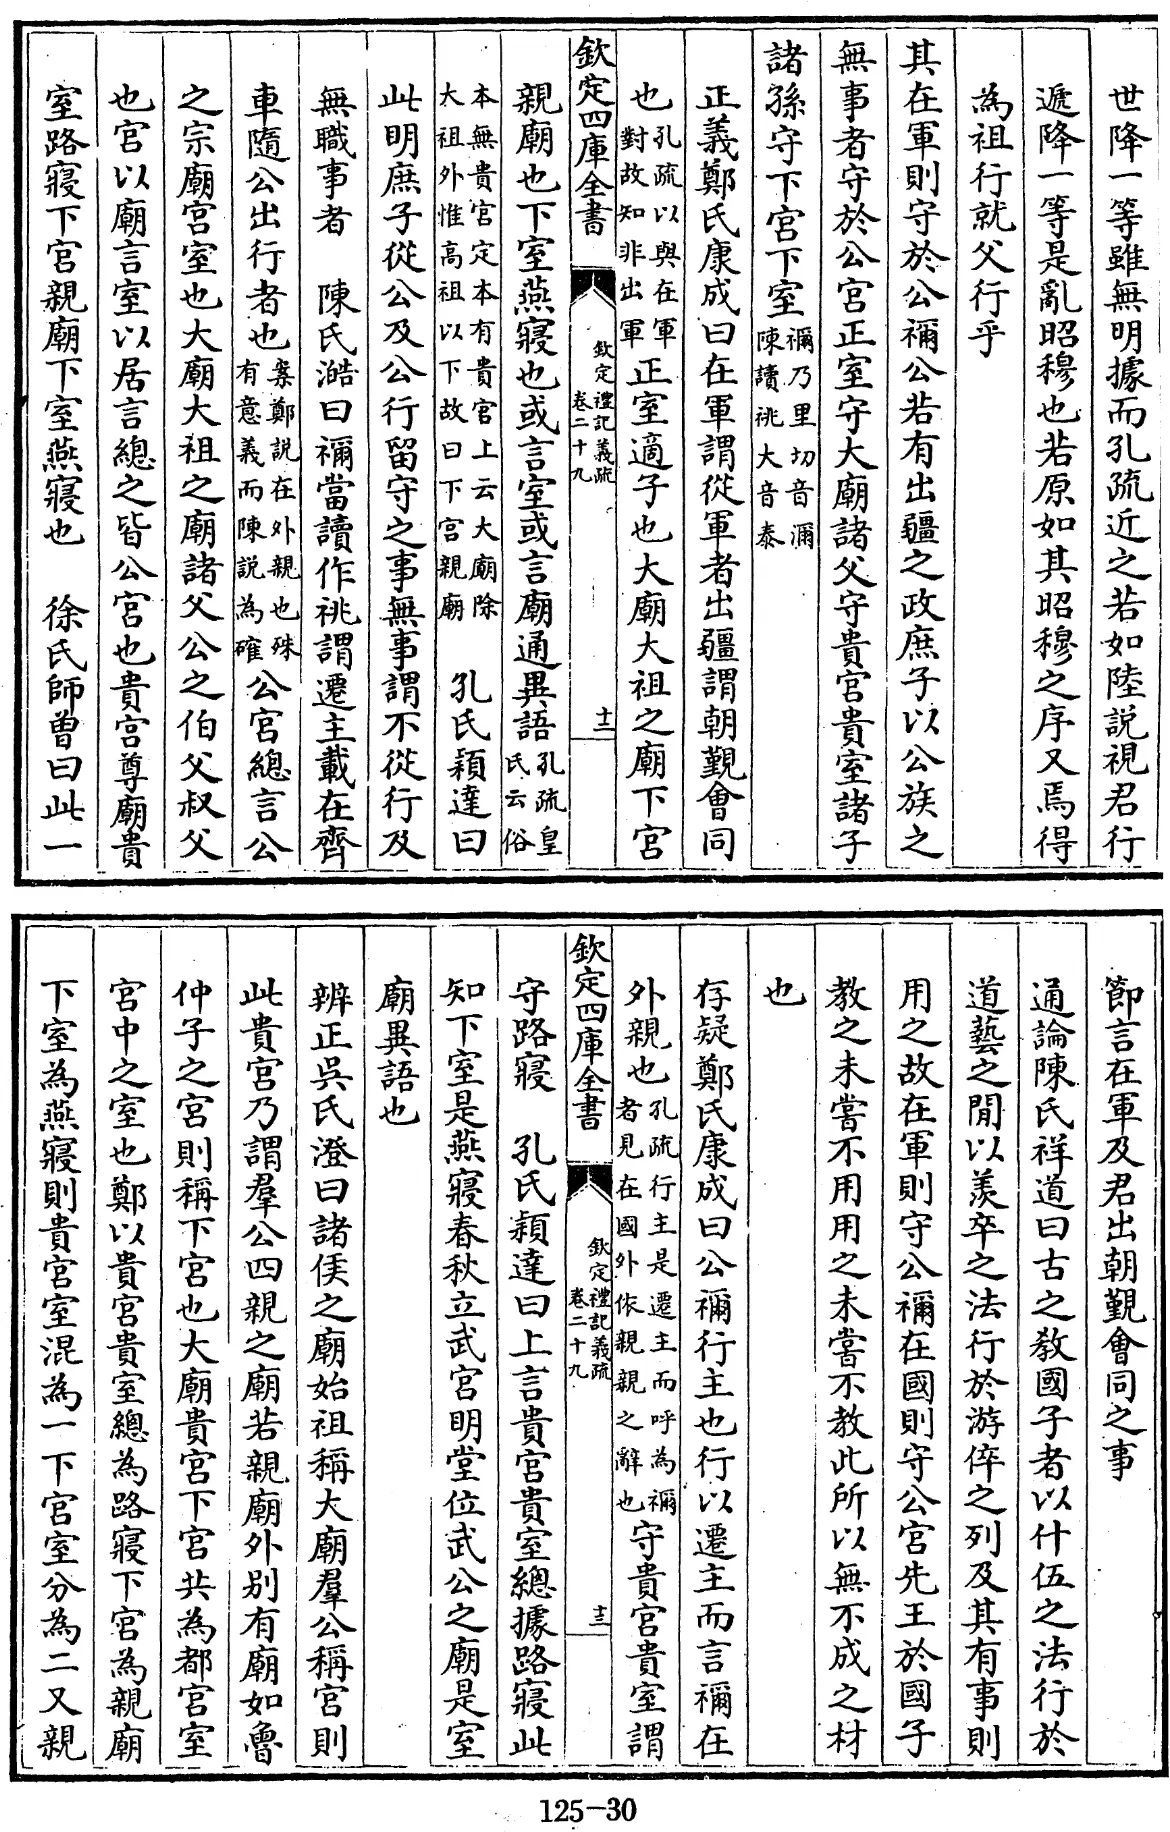 世降一等雖無明據而孔疏近之若如陸説視君行
遞降一等是亂昭穆也若原如其昭穆之序又焉得
為祖行就父行乎
其在軍則守於公禰公若有出疆之政庶子以公族之
無事者守於公宮正室守大廟諸父守貴宮貴室諸子
諸孫守下宮下室禰乃里切音瀰陳讀祧大音泰
正義鄭氏康成曰在軍謂從軍者出疆謂朝覲會同
也孔疏以與在軍對故知非出軍正室適子也大廟大祖之廟下宮
欽定四庫全書 欽定禮記義疏 卷二十九 十二
親廟也下室燕寢也或言室或言廟通異語孔疏皇氏云俗
本無貴官定本有貴官上云大廟除大祖外惟高祖以下故曰下宮親廟 孔氏穎達曰
此明庶子從公及公行留守之事無事謂不從行及
無職事者 陳氏澔曰禰當讀作祧謂遷主載在齊
車隨公出行者也案鄭説在外親也殊有意義而陳説為確公宮總言公
之宗廟宮室也大廟大祖之廟諸父公之伯父叔父
也宮以廟言室以居言總之皆公宮也貴宮尊廟貴
室路寢下宮親廟下室燕寢也 徐氏師曾曰此一
節言在軍及君出朝覲會同之事
通論陳氏祥道曰古之教國子者以什伍之法行於
道藝之閒以羨卒之法行於游倅之列及其有事則
用之故在軍則守公禰在國則守公宮先王於國子
教之未嘗不用用之未嘗不教此所以無不成之材
也
存疑鄭氏康成曰公禰行主也行以遷主而言禰在
外親也孔疏行主是遷主而呼為禰者見在國外依親親之辭也守貴宮貴室謂
欽定四庫全書 欽定禮記義疏 卷二十九 十三
守路寢 孔氏穎達曰上言貴宮貴室總據路寢此
知下室是燕寢春秋立武宮明堂位武公之廟是室
廟異語也
辨正吳氏澄曰諸侯之廟始祖稱大廟羣公稱宮則
此貴宮乃謂羣公四親之廟若親廟外别有廟如魯
仲子之宮則稱下宮也大廟貴宮下宮共為都宮室
宮中之室也鄭以貴宮貴室總為路寢下宮為親廟
下室為燕寢則貴宮室混為一下宮室分為二又親
125-30